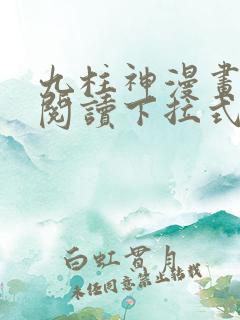 九柱神漫畫
閱讀下拉式
白虹貫月
未经同意禁止转载